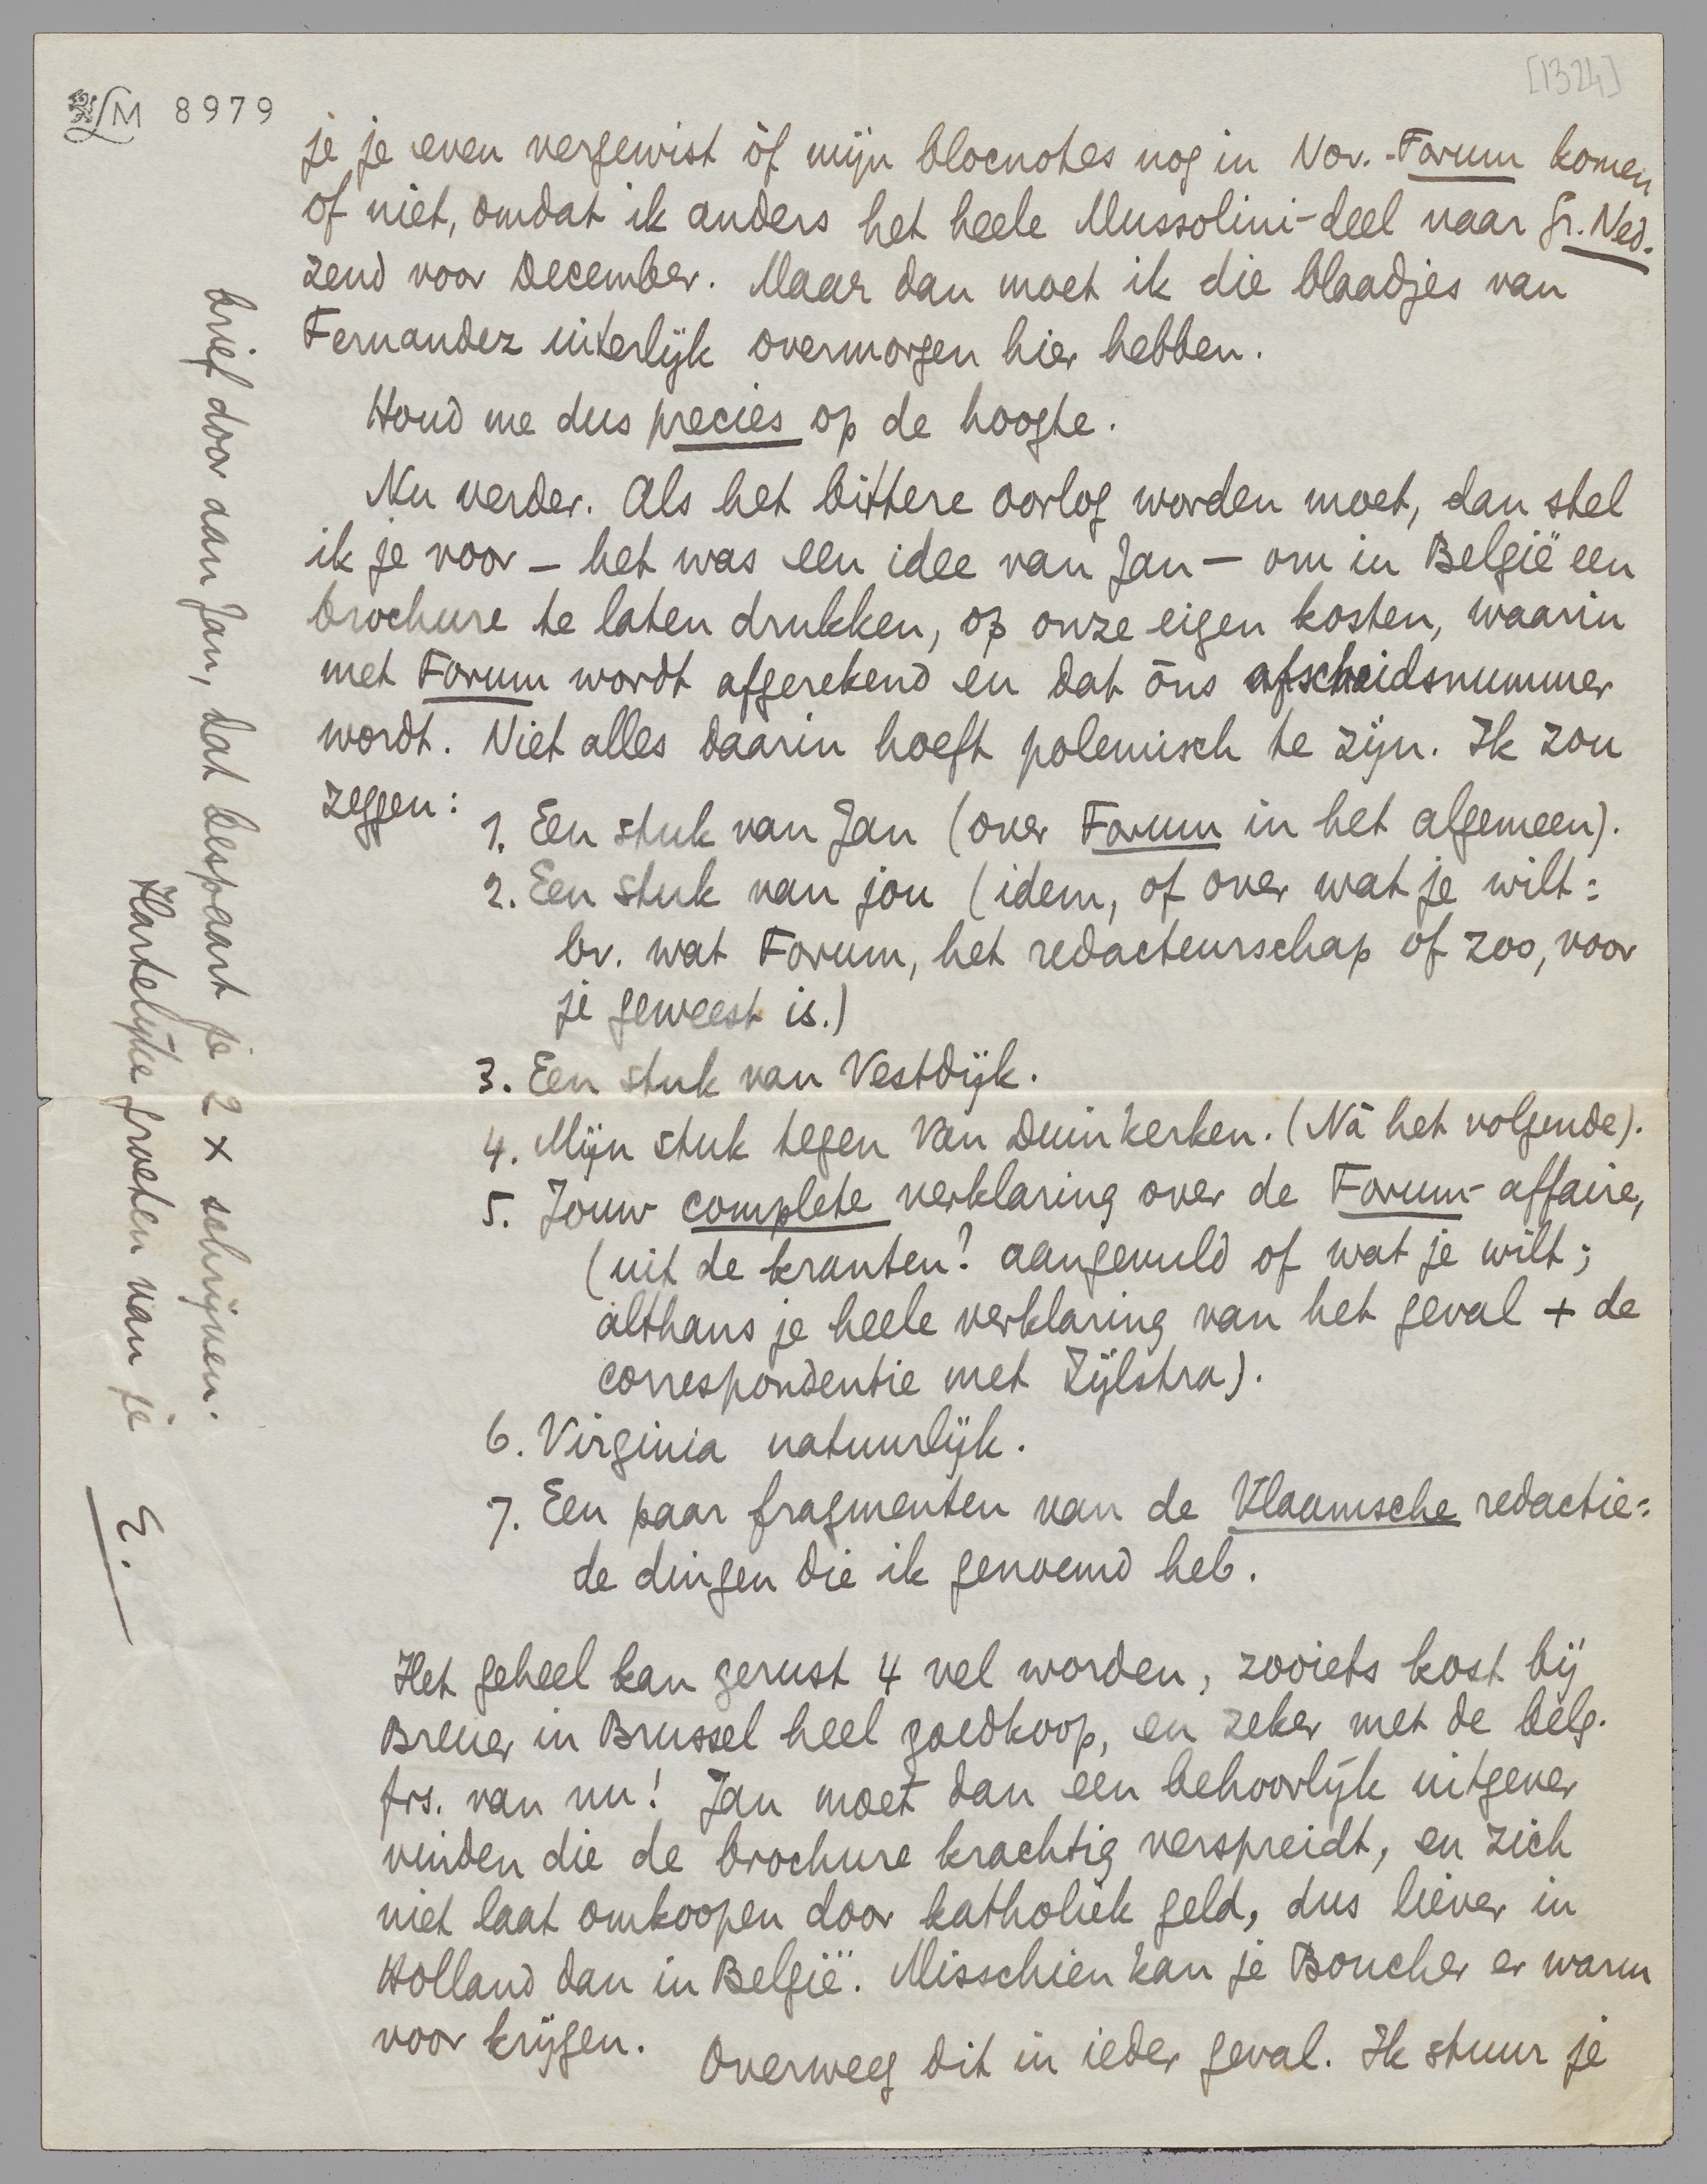 [1324]
LM 8979
je je even vergewist òf mijn blocnotes nog in Nov.-Forum komen
of niet, omdat ik anders het heele Mussolini-deel naar Gr. Ned.
zend voor December. Maar dan moet ik die blaadjes van
Fernandez uiterlijk overmorgen hier hebben.
Houd me dus precies op de hoogte.
Nu verder. Als het bittere oorlog worden moet, dan stel
ik je voor – het was een idee van Jan – om in België een
brochure te laten drukken, op onze eigen kosten, waarin
met Forum wordt afgerekend en dat óns afscheidsnummer
wordt. Niet alles daarin hoeft polemisch te zijn. Ik zou
zeggen:
1. Een stuk van Jan (over Forum in het algemeen).
2. Een stuk van jou (idem, of over wat je wilt:
bv. wat Forum, het redacteurschap of zoo, voor
je geweest is.)
3. Een stuk van Vestdijk.
4. Mijn stuk tegen Van Duinkerken. (Ná het volgende).
5. Jouw complete verklaring over de Forum-affaire,
(uit de kranten? aangevuld of wat je wilt;
althans je heele verklaring van het geval + de
correspondentie met Zijlstra).
6. Virginia natuurlijk.
7. Een paar fragmenten van de Vlaamsche redactie:
de dingen die ik genoemd heb.
Het geheel kan gerust 4 vel worden, zooiets kost bij
Breuer in Brussel heel goedkoop, en zeker met de belg.
frs. van nu! Jan moet dan een behoorlijk uitgever
vinden die de brochure krachtig verspreidt, en zich
niet laat omkoopen door katholiek geld, dus liever in
Holland dan in België. Misschien kan je Boucher er warm
voor krijgen. Overweeg dit in ieder geval. Ik stuur je
brief door aan Jan, dat bespaart je 2 x schrijven.
Hartelijke groeten van je
E.